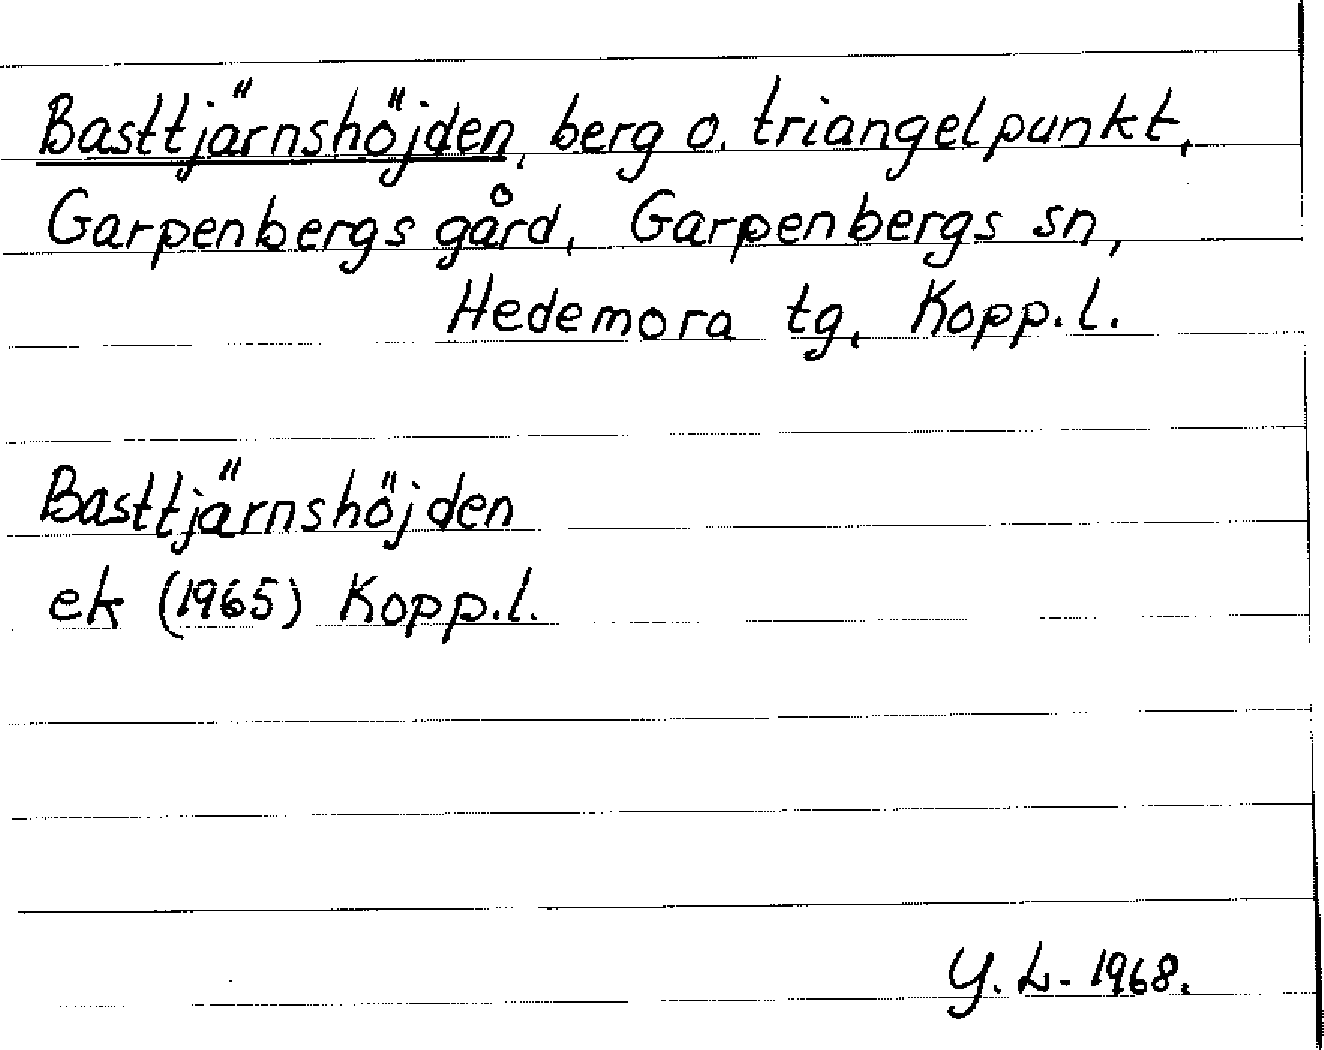 Basttjärnshöjden, berg o. triangelpunkt,
Garpenbergs gård, Garpenbergs sn,
Hedemora tg, Kopp.l.
Basttjärnshöjden
ek (1965) Kopp.l.
Y. L. 1968.